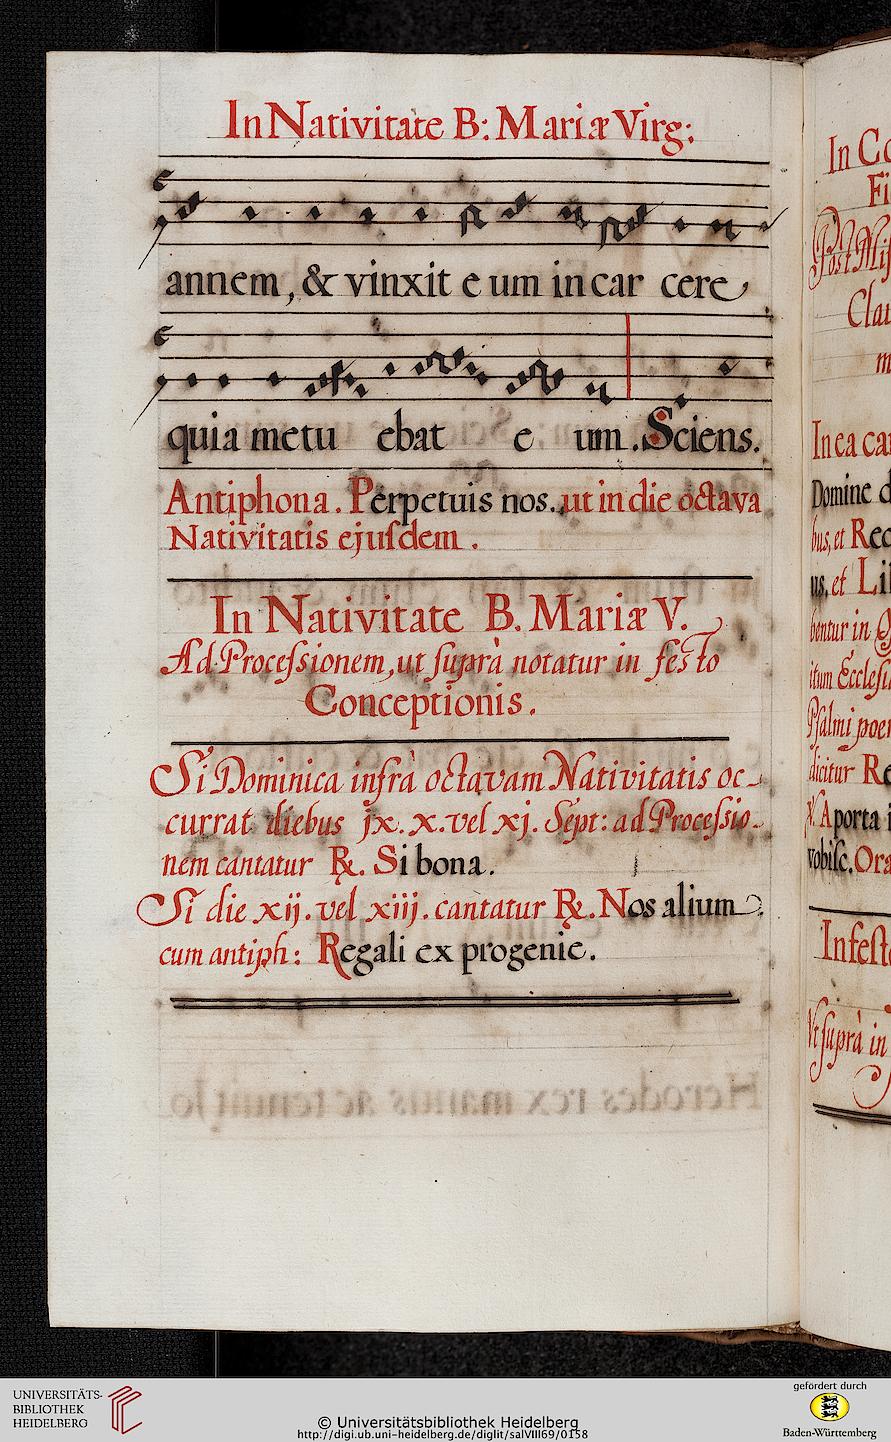 In Nativitate B: Mariæ Virg:
annem, & vinxit e um in car cere
quia metu ebat e um. Sciens.
Antiphona. Perpetuis nos. ut in die octava
Nativitatis ejuſdem.
In Nativitate B. Mariæ V.
Ad Proceſsionem, ut ſuprà notatur in feſto
Conceptionis.
Si Dominica infrà octavam Nativitatis oc-
currat diebus jx. x. vel xj. Sept: ad Proceſsio-
nem cantatur ℟. Si bona.
Si die xij. vel xiij. cantatur ℟. Nos alium
cum antiph: Regali ex progenie.
In
Fi
Poſt
Clau
m
In ea
Domine
bus, et
us, et
bentur in
itum Eccleſi
Pſalmi
dicitur
℣. A porta
vobiſc. Ora
In feſt
Vt ſuprà in
UNIVERSITÄTS-
BIBLIOTHEK
HEIDELBERG
© Universitätsbibliothek Heidelberg
http://digi.ub.uni-heidelberg.de/diglit/salVIII69/0158
gefördert durch
Baden-Württemberg